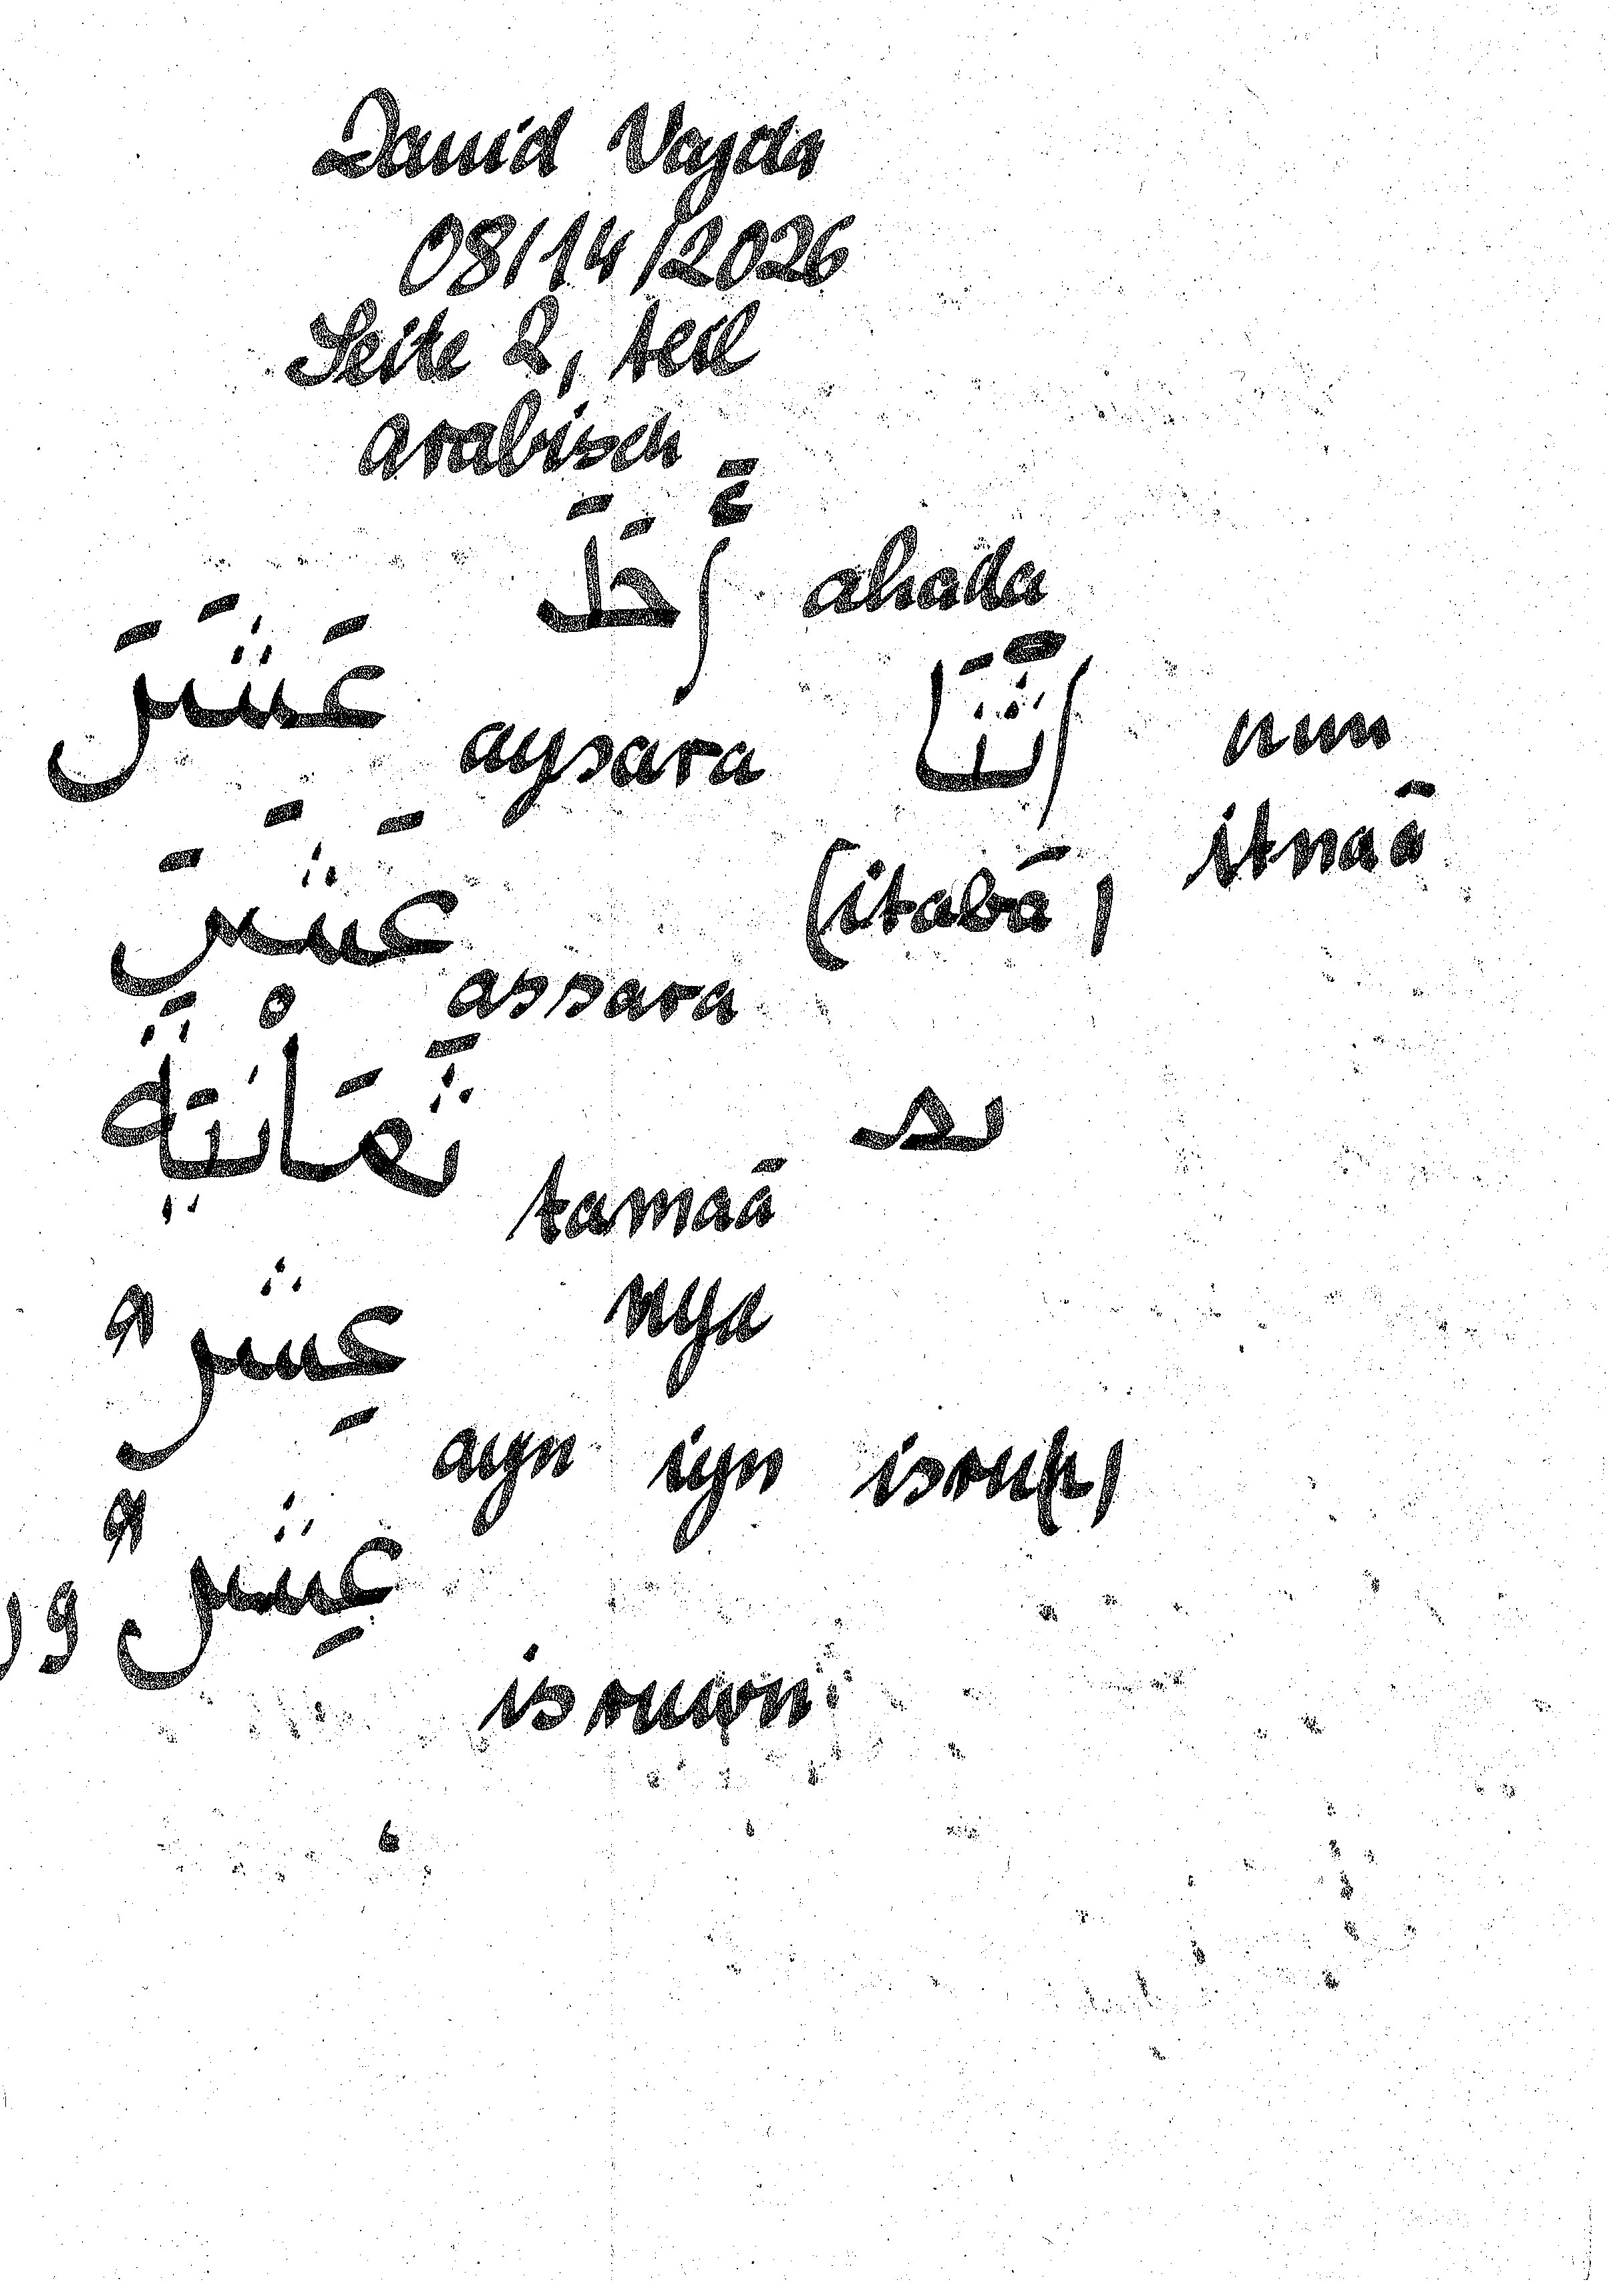 David Vajda
08/14/2026
Seite 2, teil
arabisch
أَحَدَ ahada
عَشَرَ aysara اثَنَا nun
(itabā) itnaā
عَشَرَ assara
ثَمَانْيَةَ
tamaā
nya
عِشرُ
ayn iyn isru(n)
عِشرُ و
isruwn